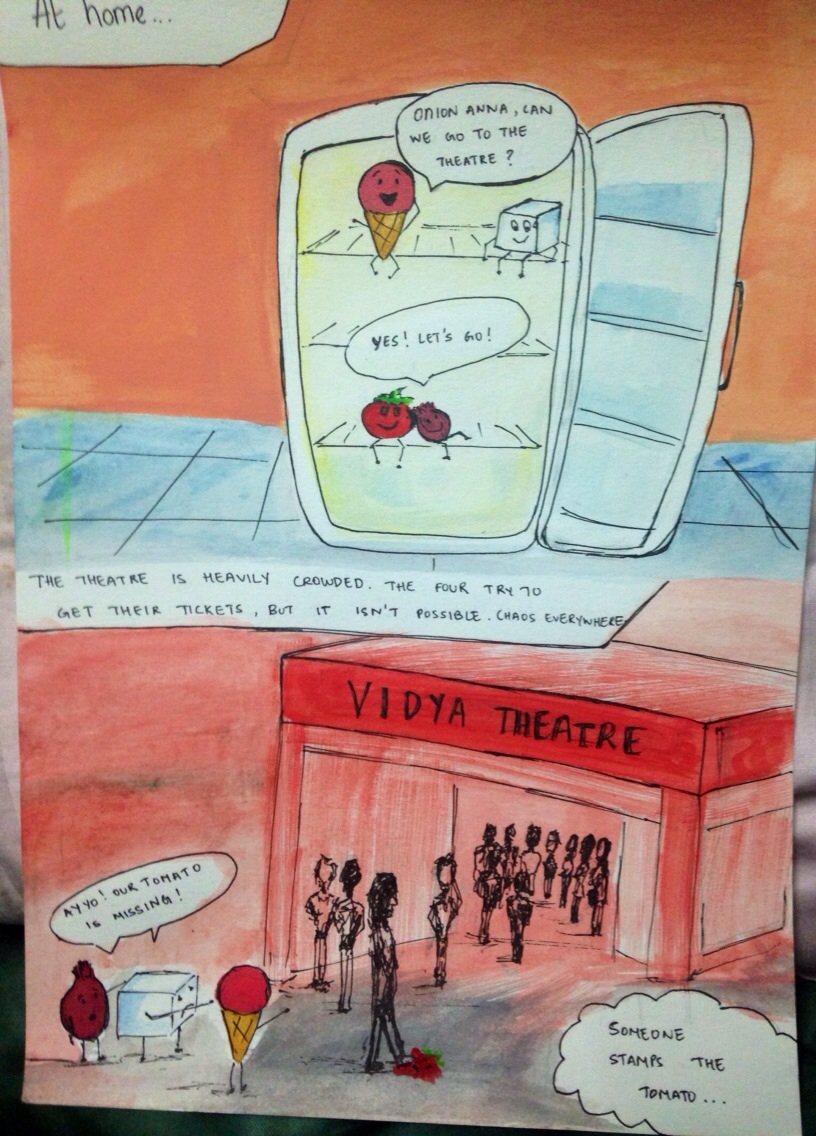 At home...
ONION ANNA, CAN
WE GO TO THE
THEATRE ?
YES! LET'S GO!
THE THEATRE IS HEAVILY CROWDED. THE FOUR TRY TO
GET THEIR TICKETS, BUT IT ISN'T POSSIBLE. CHAOS EVERYWHERE
VIDYA THEATRE
AYYO! OUR TOMATO
IS MISSING!
SOMEONE
STAMPS THE
TOMATO...